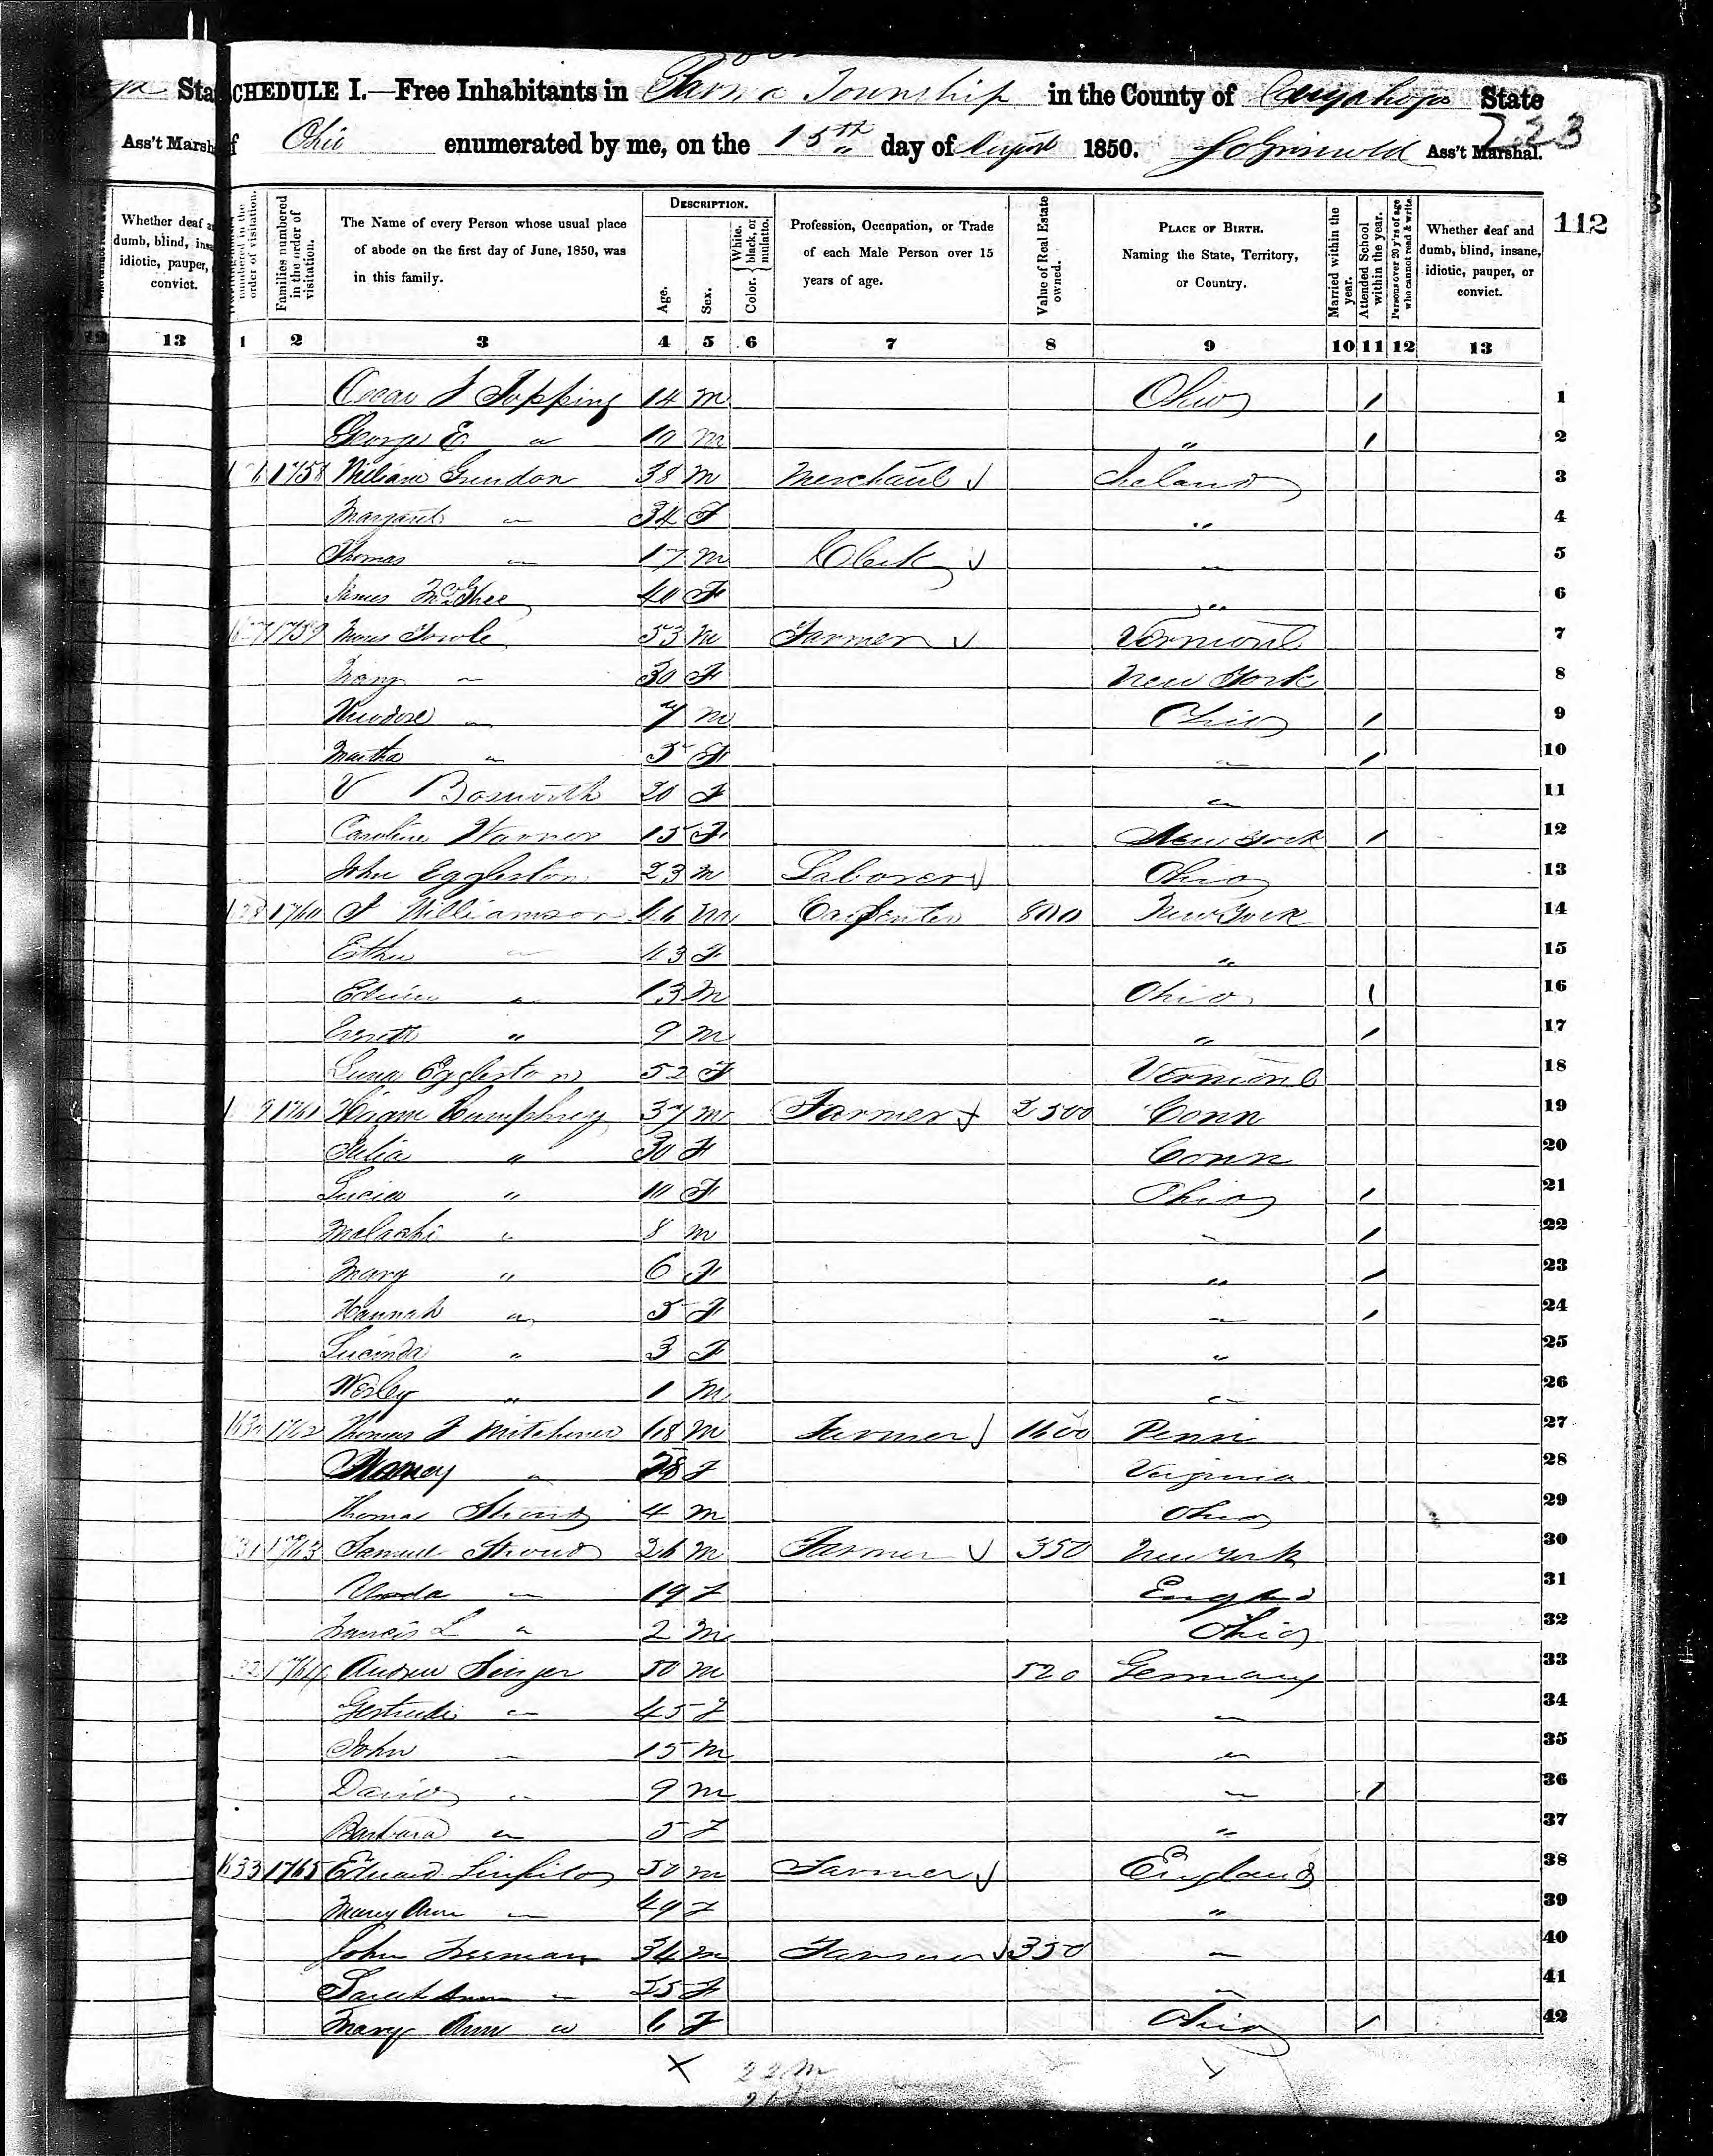 Sta
Ass't Marsh
SCHEDULE I.—Free Inhabitants in Parma Township in the County of Cuyahoga State
of Ohio enumerated by me, on the 15th day of August 1850. Griswold Ass't Marshal.
223
112
Whether deaf
dumb, blind, insa
idiotic, pauper,
convict.
numbered in the order of visitation.
Families numbered in the order of visitation.
The Name of every Person whose usual place
of abode on the first day of June, 1850, was
in this family.
DESCRIPTION.
Age.
Sex.
Color. White, black, or mulatto.
Profession, Occupation, or Trade
of each Male Person over 15
years of age.
Value of Real Estate owned.
PLACE OF BIRTH.
Naming the State, Territory,
or Country.
Married within the year.
Attended School within the year.
Persons over 20 y'rs of age who cannot read & write.
Whether deaf and
dumb, blind, insane,
idiotic, pauper, or
convict.
12 13 1 2 3 4 5 6 7 8 9 10 11 12 13
Topping 14 M Ohio / 1
George E " 10 M " / 2
1758 William 38 M Merchant Ireland 3
Margaret " 34 F " 4
Thomas " 17 M Clerk " 5
James McGhee 40 F " 6
1759 Towle 53 M Farmer Vermont 7
" 30 F New York 8
Theodore " 7 M Ohio / 9
Martha " 5 F " / 10
V Bosworth 20 F " 11
Caroline Warner 15 F New York / 12
John Eggleston 23 M Laborer Ohio 13
1760 Williamson 46 M Carpenter 800 New York 14
Esther " 43 F " 15
Edwin " 13 M Ohio / 16
" 9 M " / 17
Eggleston 52 F Vermont 18
1761 Hiram Humphrey 37 M Farmer 2500 Conn 19
Julia " 30 F Conn 20
Lucia " 10 F Ohio / 21
Malachi " 8 M " / 22
Mary " 6 F " / 23
Hannah " 5 F " / 24
Lucinda " 3 F " 25
Wesley " 1 M " 26
1630 1762 Thomas 48 M Farmer 1600 Penn 27
Nancy " F Virginia 28
Thomas Stroud 4 M Ohio 29
1763 Samuel Stroud 26 M Farmer 350 New York 30
" 19 F England 31
Francis L " 2 M Ohio 32
1764 Andrew Singer 50 M 520 Germany 33
Gertrude " 45 F " 34
John " 15 M " 35
David " 9 M " / 36
Barbara " 5 F " 37
1633 1765 Edward 50 M Farmer England 38
Mary Ann " 49 F " 39
John Freeman 34 M Farmer 350 " 40
Sarah Ann " F " 41
Mary Ann " 6 F Ohio / 42
22 M